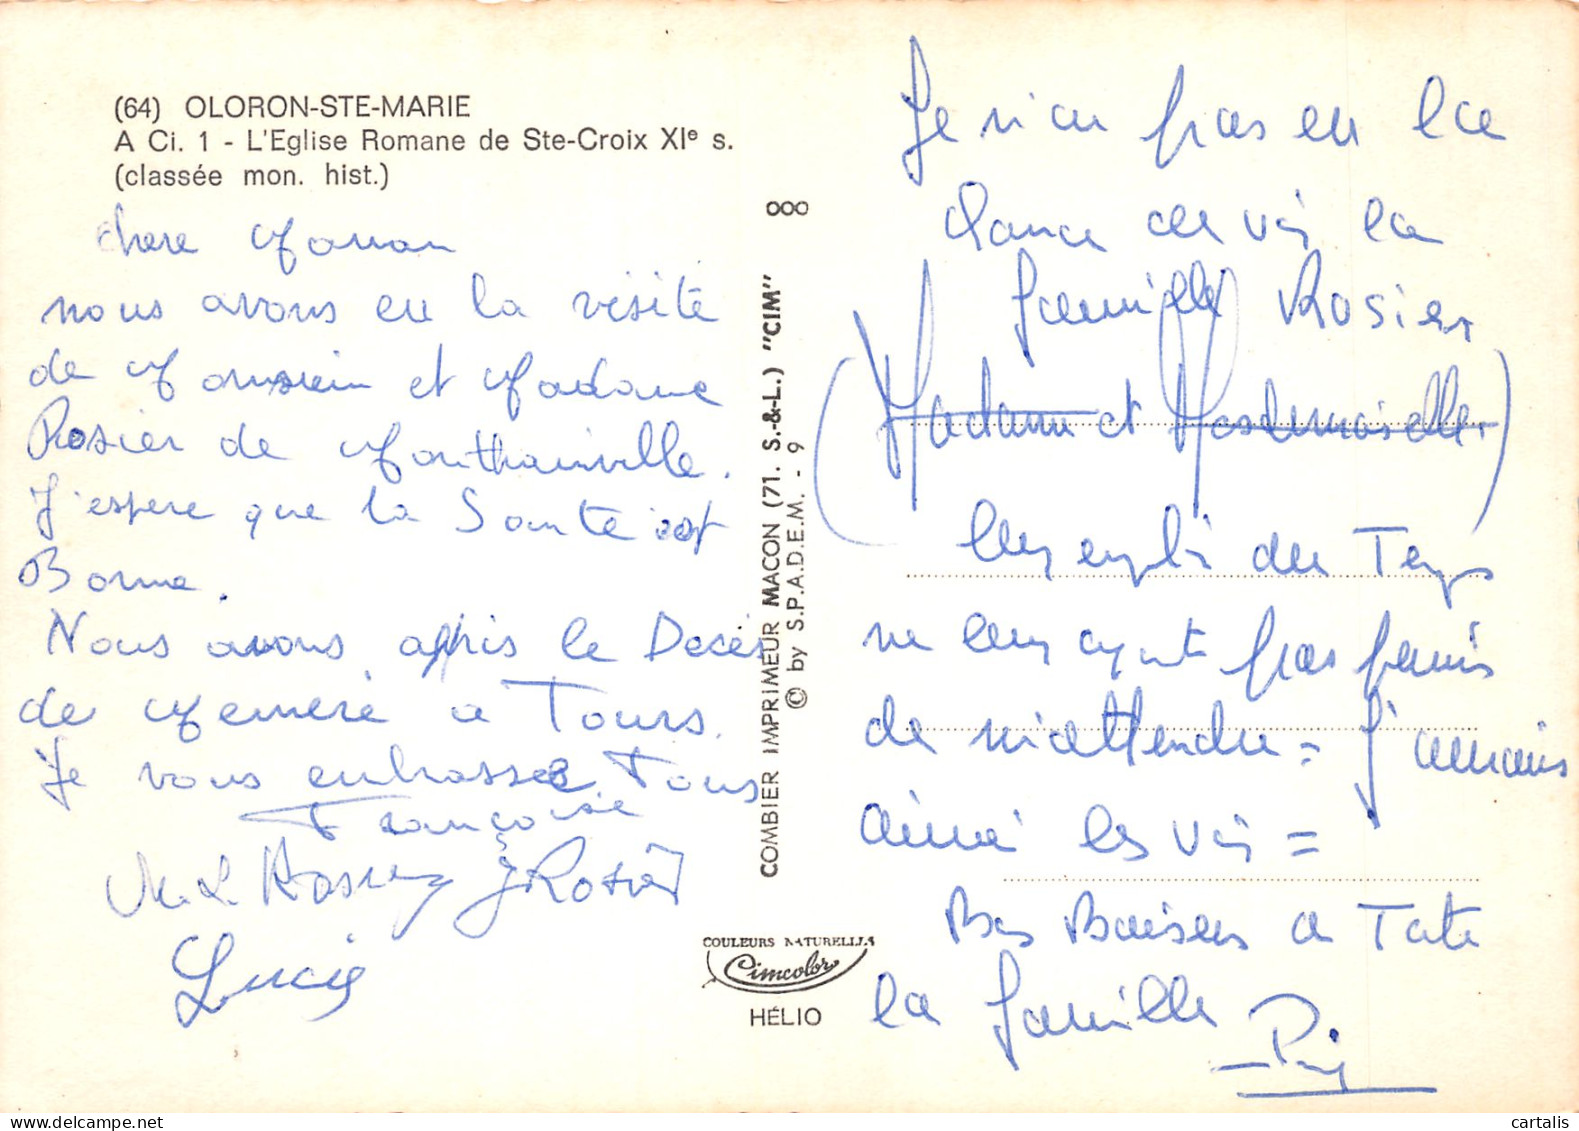 (64) OLORON-STE-MARIE
A Ci. 1 - L'Eglise Romane de Ste-Croix XIe s.
(classée mon. hist.)
chere Maman
nous avons eu la visite
de Monsieur et Madame
Rosier de Monthainville.
J'espere que la Sante est
Bonne.
Nous avons appris le Deces
de Memere a Tours.
Je vous embrasse Tous
Françoise
M. L. Rosier
Lucie
000
COMBIER IMPRIMEUR MACON (71. S.-&-L.) "CIM"
© by S.P.A.D.E.M. - 9
COULEURS NATURELLES
Cimcolor
HÉLIO
Je n'ai pas eu la
chance de voir la
famille Rosier
(Madame et Mesdemoiselles)
Leur emploi du Temps
ne leur ayant pas permis
de m'attendre = J'aurais
aimé les voir =
Bs Baisers a Tate
la famille